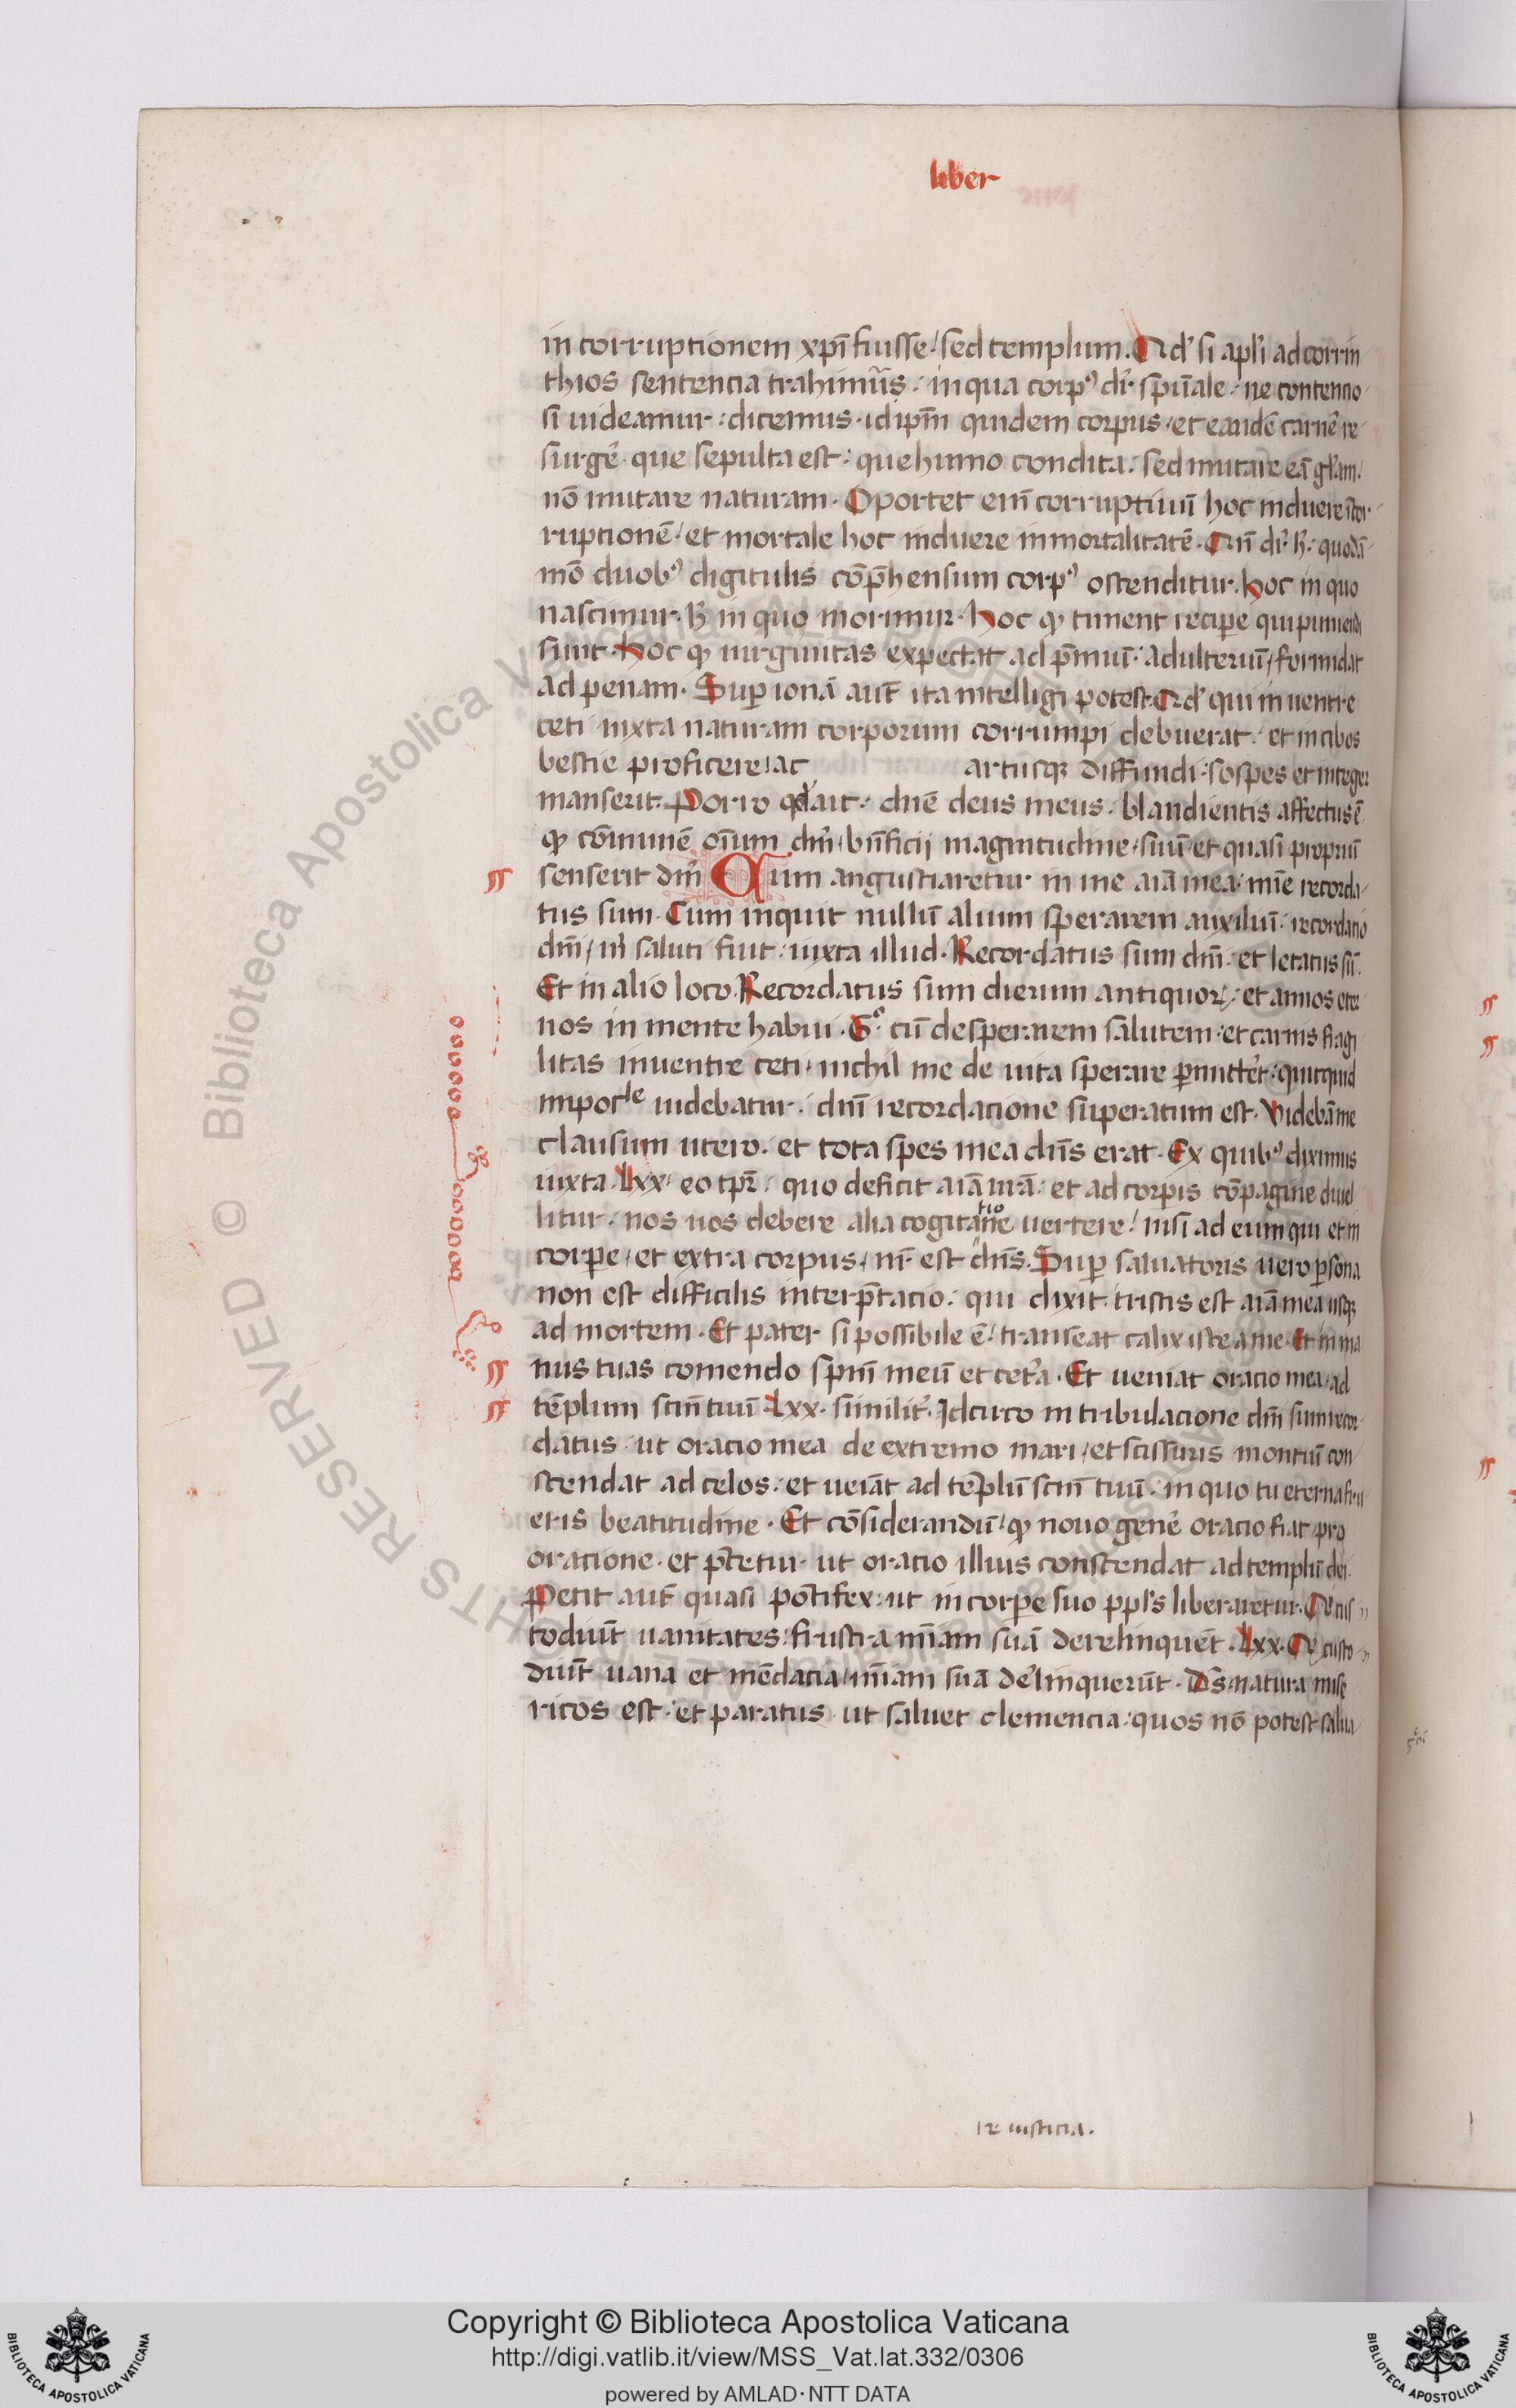 liber
in corruptionem xpi fuisse / sed templum. Qd' si apl'i ad corrin
thios sentencia trahimur : in qua corp⁹ dr̄ spūale : ne contencio
si uideamur : dicemus · id ip̄m quidem corpus · et eandē carnē re
surgē · que sepulta est : que humo condita : sed mutare eā gl'am /
nō mutare naturam · Oportet enī corruptiuū hoc induere
ruptionē / et mortale hoc induere inmortalitatē · Cū dr̄ h̄ : quodā
mō duob⁹ digitulis cōp̄hensum corp⁹ ostenditur · hoc in quo
nascimur · h̄ in quo morimur · hoc qđ timent recipe qui puniendi
sunt · hoc qđ uirginitas expectat ad p̄miū : adulteriū / formidat
ad penam · Sup ionā aut̄ ita intelligi potest · Qd' qui in uentre
ceti iuxta naturam corporum corrumpi debuerat : et in cibos
bestie proficere / ac artusq; diffundi : sospes et integer
manserit · Porro qđ ait : dn̄e deus meus · blandientis affectus ē
qđ cōmunē om̄um dm̄ / bn̄ficij magnitudine / suū et quasi propriū
senserit dm̄ Cum angustiaretur in me aīa mea : mīe recorda
tus sum · Cum inquit nullū alium sperarem auxiliū : recordacio
dm̄ / m̄ saluti fuit : iuxta illud · Recordatus sum dm̄ : et letatus sū ·
Et in alio loco · Recordatus sum dierum antiquoꝝ : et annos eter
nos in mente habui · G⁰ cū desperarem salutem : et carnis fragi
litas in uentre ceti / nichil me de uita sperare pmittet̄ : quicquid
impoc^le uidebatur : dnī recordacione superatum est · Videbā me
clausum utero · et tota spes mea dn̄s erat · Ex quib⁹ diximus
iuxta · Lxx · eo tpr̄ : quo deficit aīa mā : et ad corpis cōpagine diuel
litur : nos uos debere alia cogitatione uertere / nisi ad eum qui et in
corpe / et extra corpus / nr̄ est dn̄s · Sup saluatoris uero psona
non est difficilis interp̄tacio : qui dixit : tristis est aīa mea usq;
ad mortem · Et pater si possibile ē / transeat calix iste a me · Et in ma
nus tuas comendo spm̄ meū et cet'a · Et ueniat oracio mea / ad
tēplum scm̄ tuū · Lxx · similit' · Idcirco in tribulacione dm̄ sum recor
datus · ut oracio mea de extremo mari / et scissuris montiū con
scendat ad celos : et ueiāt ad tēplū scm̄ tuū · in quo tu eterna fru
eris beatitudine · Et cōsiderandū / qđ nouo genē oracio fiat pro
oracione · et p̄cetur ut oracio illius conscendat ad templū dei ·
Petit aut̄ quasi pōtifex : ut in corpe suo ppl's liberaretur · Qi cus
todiūt uanitates : frustra mīam suā derelinquēt · Lxx · Qi custo
diūt uana et mēdacia / mīam suā de'linquerūt · Ds natura mise
ricos est · et paratus ut saluet clemencia : quos nō potest salua
re iusticia.
Copyright © Biblioteca Apostolica Vaticana
http://digi.vatlib.it/view/MSS_Vat.lat.332/0306
powered by AMLAD·NTT DATA
BIBLIOTECA APOSTOLICA VATICANA
BIBLIOTECA APOSTOLICA VATICANA